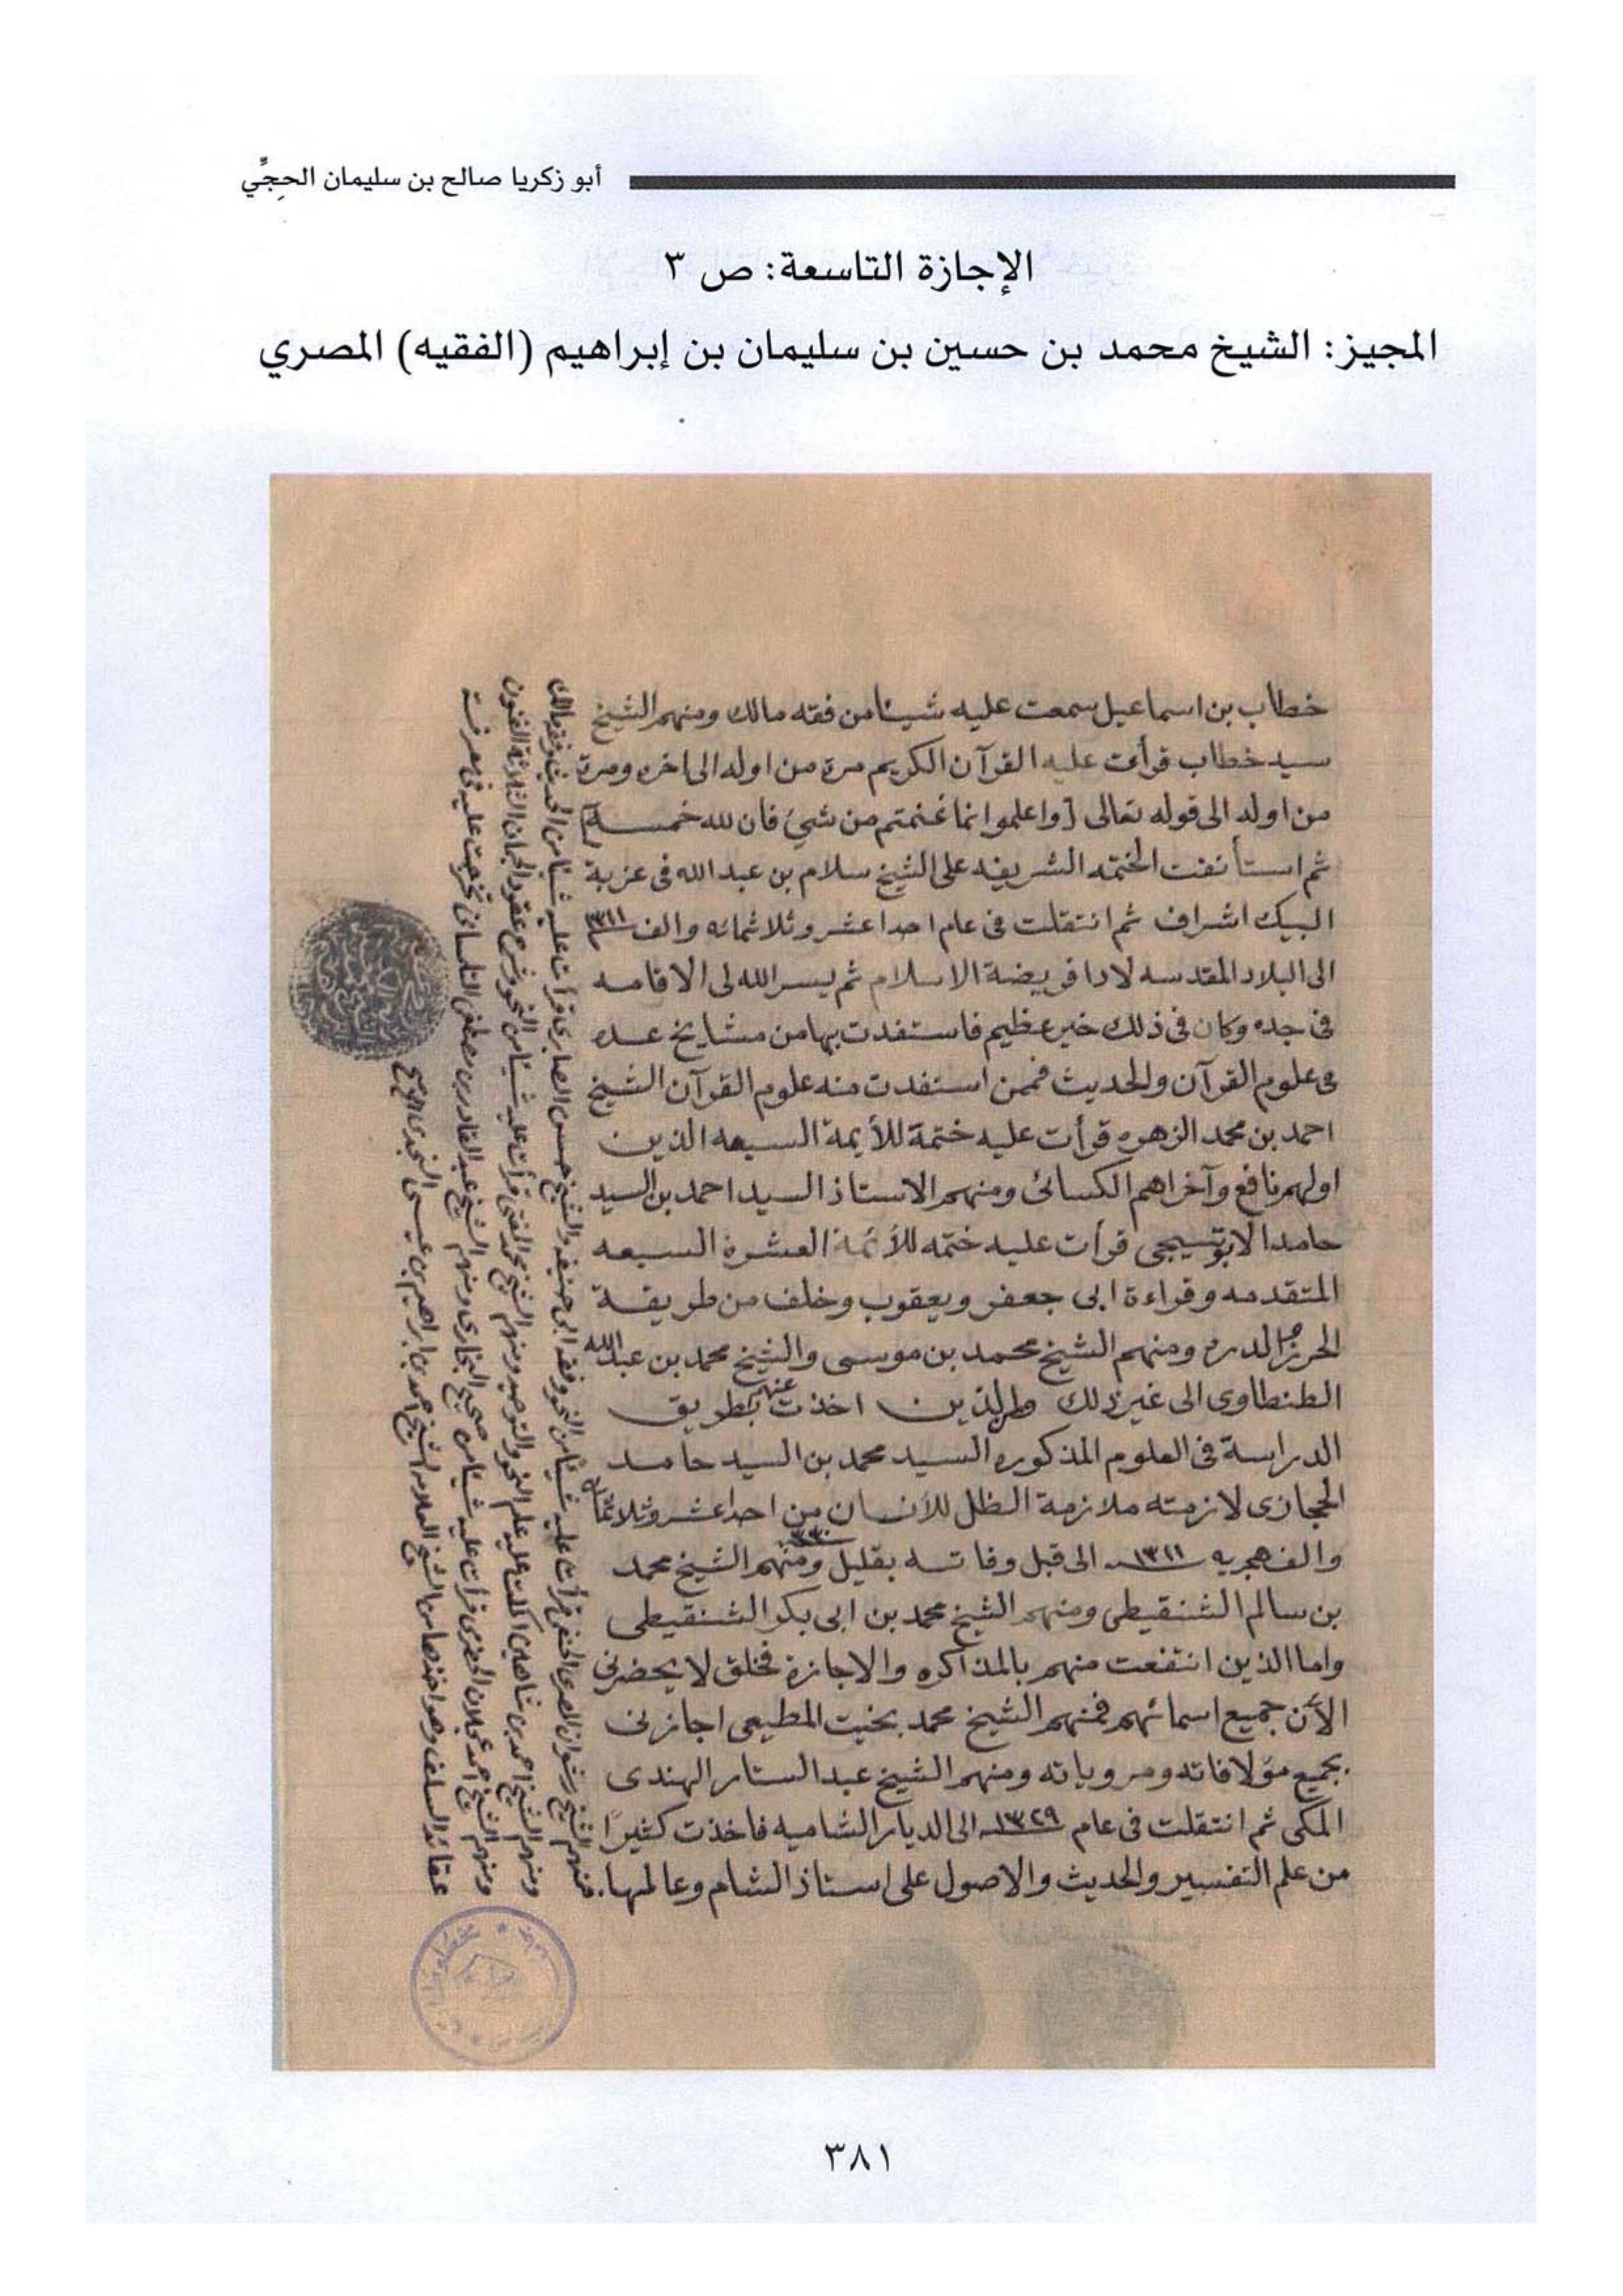 أبو زكريا صالح بن سليمان الحجِّي
الإجازة التاسعة: ص ٣
المجيز: الشيخ محمد بن حسين بن سليمان بن إبراهيم (الفقيه) المصري
خطاب بن اسماعيل سمعت عليه شيئا من فقه مالك ومنهم الشيخ
سيد خطاب قرأت عليه القرآن الكريم مرة من اوله الى اخره ومرة
من اوله الى قوله تعالى [واعلموا انما غنمتم من شئ فان لله خمسه]
ثم استأنفت الختمه الشريفه على الشيخ سلام بن عبد الله فى عزبة
البيك اشراف ثم انتقلت فى عام احدا عشر وثلاثمائه والف ١٣١١
الى البلاد المقدسه لادا فريضة الاسلام ثم يسر الله لى الاقامه
فى جده وكان فى ذلك خير عظيم فاستفدت بها من مشايخ عده
فى علوم القرآن والحديث فممن استفدت منه علوم القرآن الشيخ
احمد بن محمد الزهره قرأت عليه ختمة للأيمة السبعه الذين
اولهم نافع وآخراهم الكسائى ومنهم الاستاذ السيد احمد بن السيد
حامد الابوتيجى قرأت عليه ختمه للأئمة العشرة السبعه
المتقدمه وقراءة ابى جعفر ويعقوب وخلف من طريقة
الحرز والدره ومنهم الشيخ محمد بن موسى والشيخ محمد بن عبد الله
الطنطاوى الى غير ذلك والذين اخذت عنهم بطريق
الدراسة فى العلوم المذكوره السيد محمد بن السيد حامد
الحجازى لازمته ملازمة الظل للأنسان من احدا عشر وثلاثمائه
والف هجريه ١٣١١ الى قبل وفاته بقليل ١٣٣٠ ومنهم الشيخ محمد
بن سالم الشنقيطى ومنهم الشيخ محمد بن ابى بكر الشنقيطى
واما الذين انتفعت منهم بالمذاكره والاجازة فخلق لا يحضرنى
الأن جميع اسمائهم فمنهم الشيخ محمد بخيت المطيعى اجازنى
بجميع مؤلافاته ومروياته ومنهم الشيخ عبد الستار الهندى
المكى ثم انتقلت فى عام ١٣٢٩ الى الديار الشاميه فاخذت كثيرًا
من علم التفسير والحديث والاصول على استاذ الشام وعالمها.
منهم الشيخ رضوان المصرى الحنفى قرأت عليه شيئا من النحو وفقه ابى حنيفه والشيخ حسن الصابرى قرأت عليه شيئا من الحديث وفقه مالك
ومنهم الشيخ احمد بن شاهين اكملت عليه علم النحو والتوحيد ومنهم الشيخ محمد المفتى قرأت عليه شيئا من النحو وشرح عقود الجمان الثلاثة الفنون
ومنهم الشيخ احمد عجلان الحضرمى قرأت عليه شيئا من صحيح البخارى ومنهم الشيخ عبد القادر بن مصطفى التلمسانى تخرجت عليه فى معرفت
عقائد السلف وهو اخذها من الشيخ العلامه الشيخ احمد بن ابراهيم بن عيسى النجدى
٣٨١